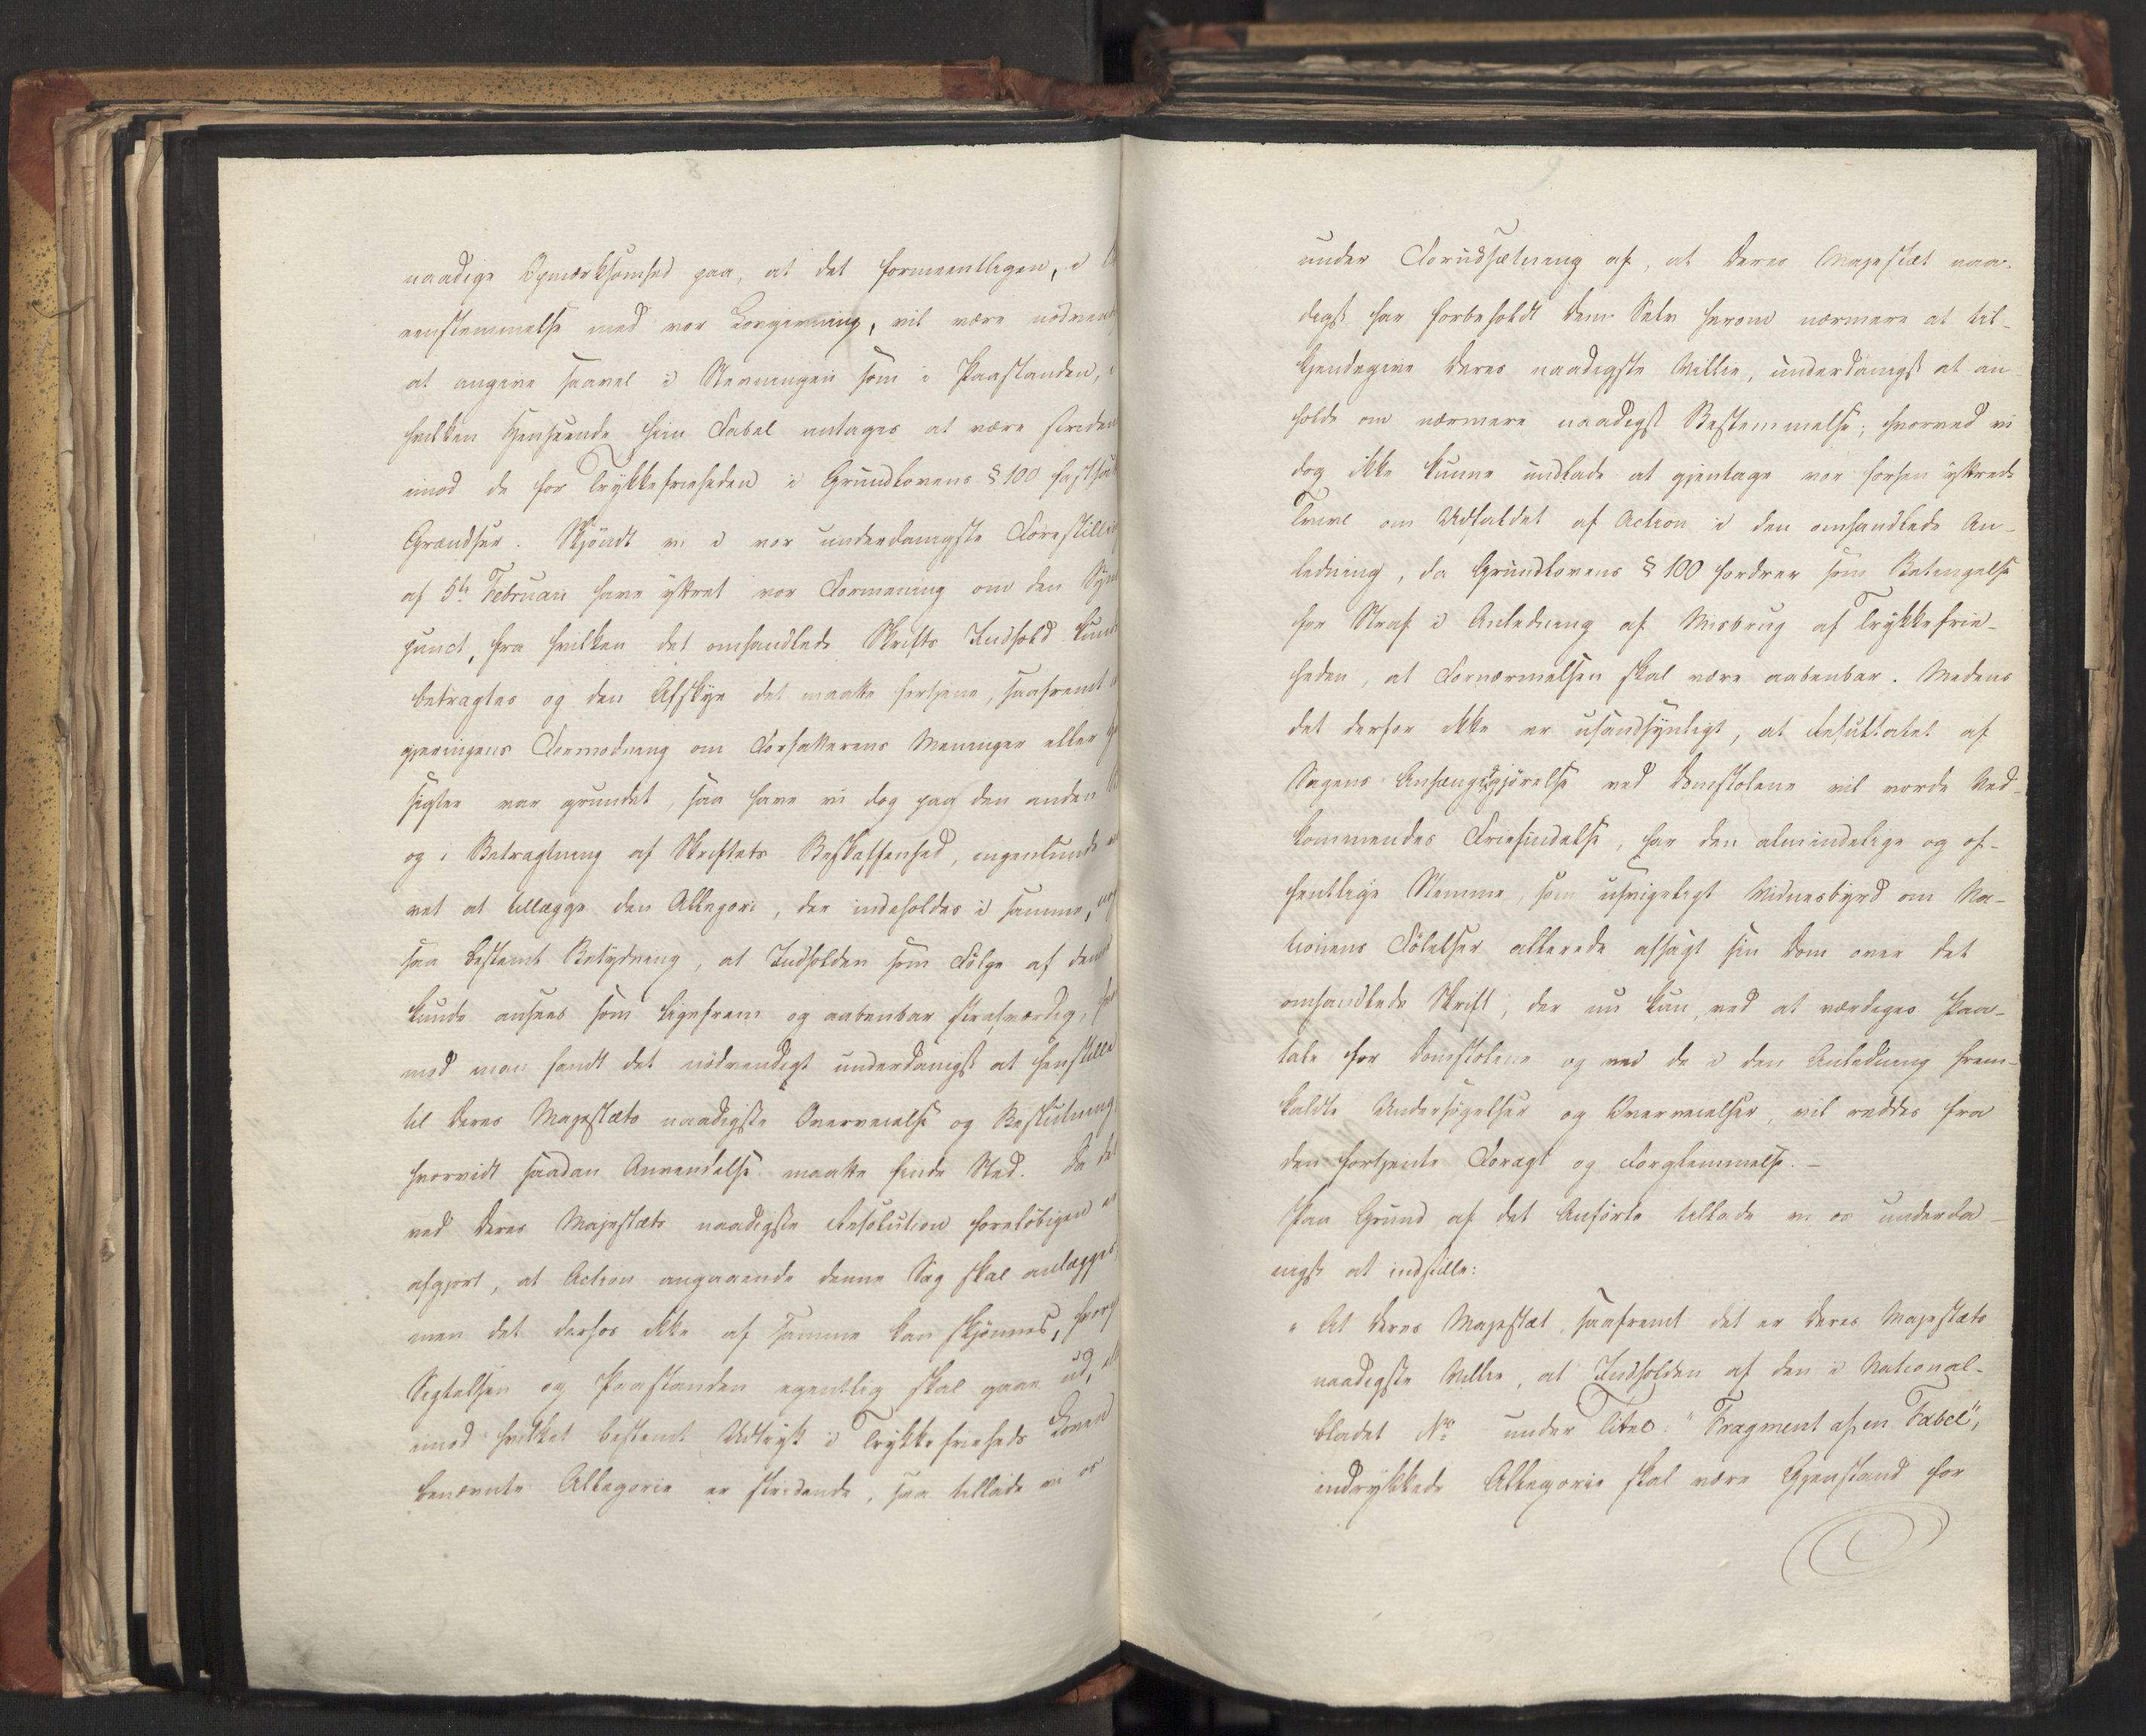 naadige Opmærksomhed paa, at det formeentligen, i
eenstemmelse med vor Lovgivning, vil være nödvend
at angive saavel i Stevningen som i Paastanden,
hvilken Henseende hiin Fabel antages at være striden
imod de for Trykkefriheden i Grundlovens § 100 fastsat
Grændser. Skjöndt vi i vor underdanigste Forestilli
af 5te Februari have yttret vor Formening om den Syns
punct, fra hvilken det omhandlede Skrifts Indhold kund
betragtes og den Afskye det maatte fortjene, saafremt
gjeringens Formodning om Forfatterens Meninger eller
sigter var grundet, saa have vi dog paa den anden
og i Betragtning af Skriftets Beskaffenhed, ingenlunde
vet at tillægge den Allegori, der indeholdes i samme,
saa bestemt Betydning, at Indholden som Fölge af den
kunde ansees som ligefrem og aabenbar strafværdig,
med man fandt det nödvendigt underdanigst at henstille
til Deres Majestæts naadigste Overveielse og Beslutning
hvorvidt saadan Anvendelse maatte finde Sted. Da det
ved Deres Majestæts naadigste Resolution foreløbigen er
afgjort, at Action angaaende denne Sag skal anlægges
men det derhos ikke af samme kan skjönnes, hvorp
Sigtelsen og Paastanden egentlig skal gaae ud,
imod hvilket bestemt Udtryk i Trykkefriheds Loven
benævnte Allegorie er stridende, saa tillade vi os
under Forudsætning af, at Deres Majestæt naa-
digst har forbeholdt Dem Selv herom nærmere at til-
kjendegive Deres naadigste Villie, underdanigst at an-
holde om nærmere naadigst Bestemmelse; hvorved vi
dog ikke kunne undlade at gjentage vor forhen yttrede
Tvivl om Udfaldet af Action i den omhandlede An-
ledning, da Grundlovens § 100 fordrer som Betingelse
for Straf i Anledning af Misbrug af Trykkefrie-
heden, at Fornærmelsen skal være aabenbar. Medens
det derfor ikke er usandsynligt, at Resultatet af
Sagens Anhængiggjörelse ved Domstolene vil vorde Ved-
kommendes Friefindelse, har den almindelige og of-
fentlige Stemme, som usvigeligt Vidnesbyrd om Na-
tionens Fölelser allerede afsagt sin Dom over det
omhandlede Skrift, der nu kun, ved at værdiges Paa-
tale for Domstolene og ved de i den Anledning frem-
kaldte Undersögelser og Overveielser, vil reddes fra
den fortjente Foragt og Forglemmelse. –
Paa Grund af det Anförte tillade vi os underda-
nigst at indstille:
" At Deres Majestæt, saafremt det er Deres Majestæts
naadigste Villie, at Indholden af den i National-
bladet No under Titel: "Fragment af en Fabel",
indrykkede Allegorie skal være Gjenstand for